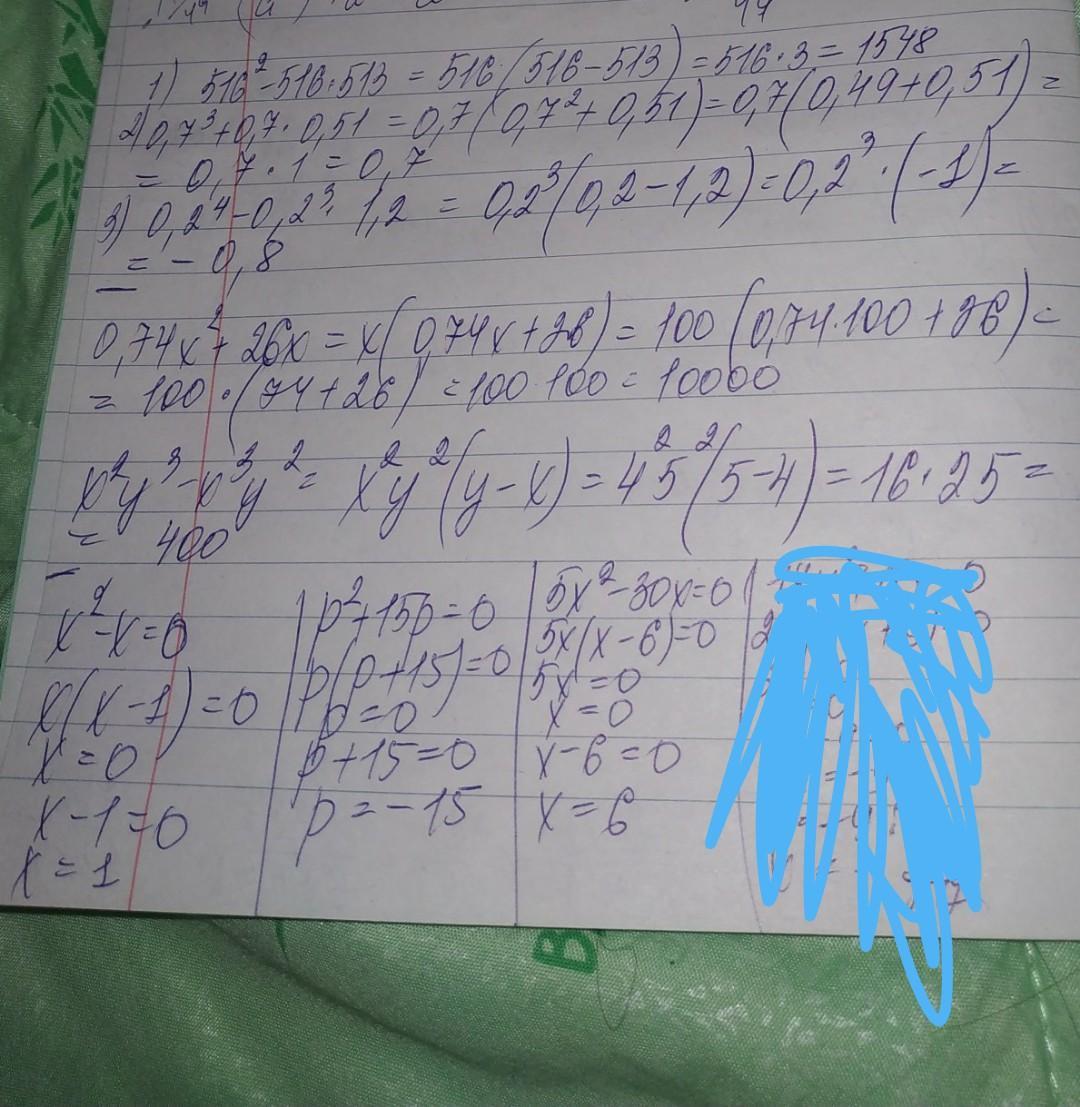 1) 516²-516·513 = 516·(516-513) = 516·3 = 1548
2) 0,7³+0,7·0,51 = 0,7(0,7²+0,51) = 0,7(0,49+0,51) =
= 0,7·1 = 0,7
3) 0,2⁴-0,2³·1,2 = 0,2³(0,2-1,2) = 0,2³·(-1) =
= -0,8
0,74x²+26x = x(0,74x+26) = 100(0,74·100+26) =
= 100·(74+26) = 100·100 = 10000
x²y³-x³y² = x²y²(y-x) = 4²5²(5-4) = 16·25 =
= 400
x²-x=0
x(x-1)=0
x=0
x-1=0
x=1
p²+15p=0
p(p+15)=0
p=0
p+15=0
p=-15
5x²-30x=0
5x(x-6)=0
5x=0
x=0
x-6=0
x=6